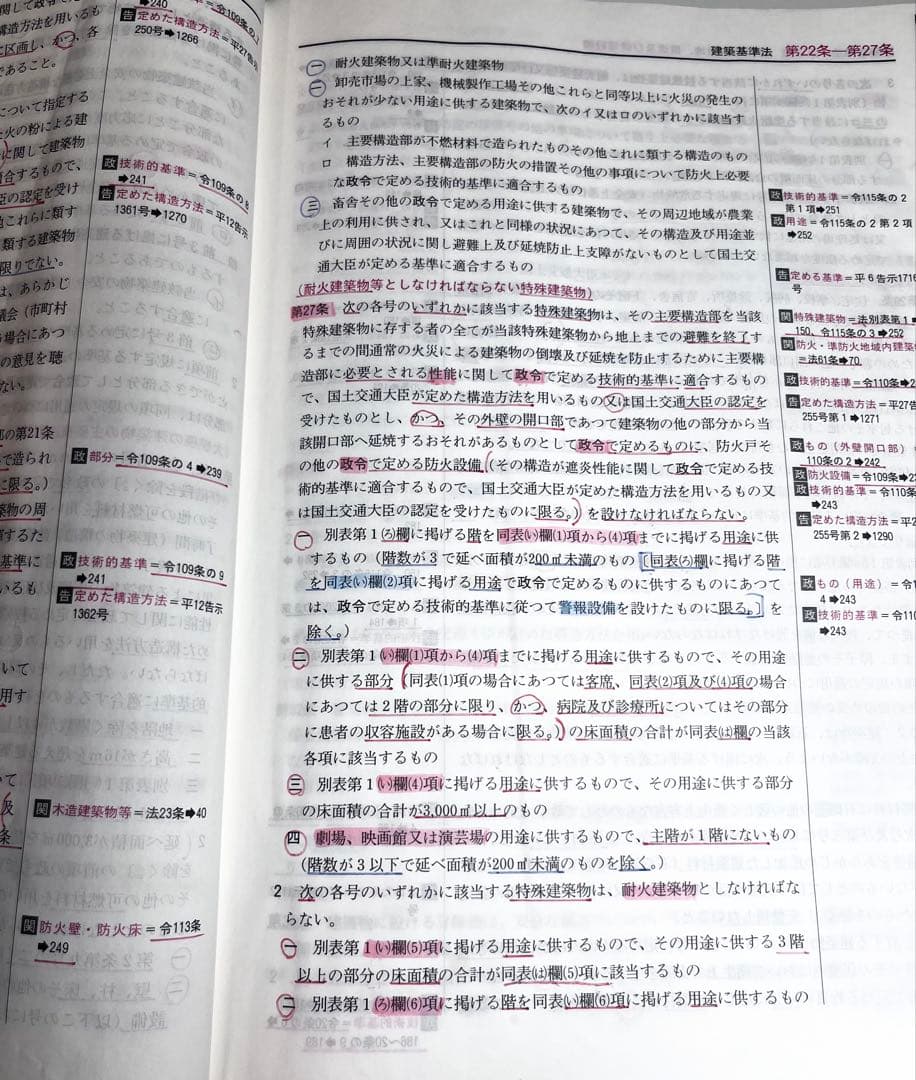 関して政令で
構造方法を用いるも
に区画し、かつ、各
であること。
について指定する
火の粉による建
に関して建築物
合するもので、
臣の認定を受け
これらに類す
類する建築物
限りでない。
は、あらかじ
議会（市町村
る場合にあつ
の意見を聴
ない。
の第21条
で造られ
に限る。）
築物の周
するた
基準に
いるも
いて
用す
➡240
告 定めた構造方法＝平27告示
250号➡1266
政 技術的基準＝令109条の8
➡241
告 定めた構造方法＝平12告示
1361号➡1270
政 部分＝令109条の4➡239
政 技術的基準＝令109条の9
➡241
告 定めた構造方法＝平12告示
1362号
関 木造建築物等＝法23条➡40
関 防火壁・防火床＝令113条
➡249
建築基準法　第22条―第27条
一　耐火建築物又は準耐火建築物
二　卸売市場の上家、機械製作工場その他これらと同等以上に火災の発生の
おそれが少ない用途に供する建築物で、次のイ又はロのいずれかに該当す
るもの
イ　主要構造部が不燃材料で造られたものその他これに類する構造のもの
ロ　構造方法、主要構造部の防火の措置その他の事項について防火上必要
な政令で定める技術的基準に適合するもの
三　畜舎その他の政令で定める用途に供する建築物で、その周辺地域が農業
上の利用に供され、又はこれと同様の状況にあつて、その構造及び用途並
びに周囲の状況に関し避難上及び延焼防止上支障がないものとして国土交
通大臣が定める基準に適合するもの
（耐火建築物等としなければならない特殊建築物）
第27条　次の各号のいずれかに該当する特殊建築物は、その主要構造部を当該
特殊建築物に存する者の全てが当該特殊建築物から地上までの避難を終了す
るまでの間通常の火災による建築物の倒壊及び延焼を防止するために主要構
造部に必要とされる性能に関して政令で定める技術的基準に適合するもの
で、国土交通大臣が定めた構造方法を用いるもの又は国土交通大臣の認定を
受けたものとし、かつ、その外壁の開口部であつて建築物の他の部分から当
該開口部へ延焼するおそれがあるものとして政令で定めるものに、防火戸そ
の他の政令で定める防火設備（その構造が遮炎性能に関して政令で定める技
術的基準に適合するもので、国土交通大臣が定めた構造方法を用いるもの又
は国土交通大臣の認定を受けたものに限る。）を設けなければならない。
一　別表第1(ろ)欄に掲げる階を同表(い)欄(1)項から(4)項までに掲げる用途に供
するもの（階数が3で延べ面積が200㎡未満のもの〔同表(ろ)欄に掲げる階
を同表(い)欄(2)項に掲げる用途で政令で定めるものに供するものにあつて
は、政令で定める技術的基準に従つて警報設備を設けたものに限る。〕を
除く。）
二　別表第1(い)欄(1)項から(4)項までに掲げる用途に供するもので、その用途
に供する部分（同表(1)項の場合にあつては客席、同表(2)項及び(4)項の場合
にあつては2階の部分に限り、かつ、病院及び診療所についてはその部分
に患者の収容施設がある場合に限る。）の床面積の合計が同表(は)欄の当該
各項に該当するもの
三　別表第1(い)欄(4)項に掲げる用途に供するもので、その用途に供する部分
の床面積の合計が3,000㎡以上のもの
四　劇場、映画館又は演芸場の用途に供するもので、主階が1階にないもの
（階数が3以下で延べ面積が200㎡未満のものを除く。）
2　次の各号のいずれかに該当する特殊建築物は、耐火建築物としなければな
らない。
一　別表第1(い)欄(5)項に掲げる用途に供するもので、その用途に供する3階
以上の部分の床面積の合計が同表(は)欄(5)項に該当するもの
二　別表第1(ろ)欄(6)項に掲げる階を同表(い)欄(6)項に掲げる用途に供するもの
政 技術的基準＝令115条の2
第1項➡251
政 用途＝令115条の2第2項
➡252
告 定める基準＝平6告示1716
号
関 特殊建築物＝法別表第1➡
150、令115条の3➡252
関 防火・準防火地域内建築
＝法61条➡70
政 技術的基準＝令110条➡2
告 定めた構造方法＝平27告
255号第1➡1271
政 もの（外壁開口部）
110条の2➡242
政 防火設備＝令109条➡23
政 技術的基準＝令110条
➡243
告 定めた構造方法＝平12
255号第2➡1290
政 もの（用途）＝令1
4➡243
政 技術的基準＝令110
➡243